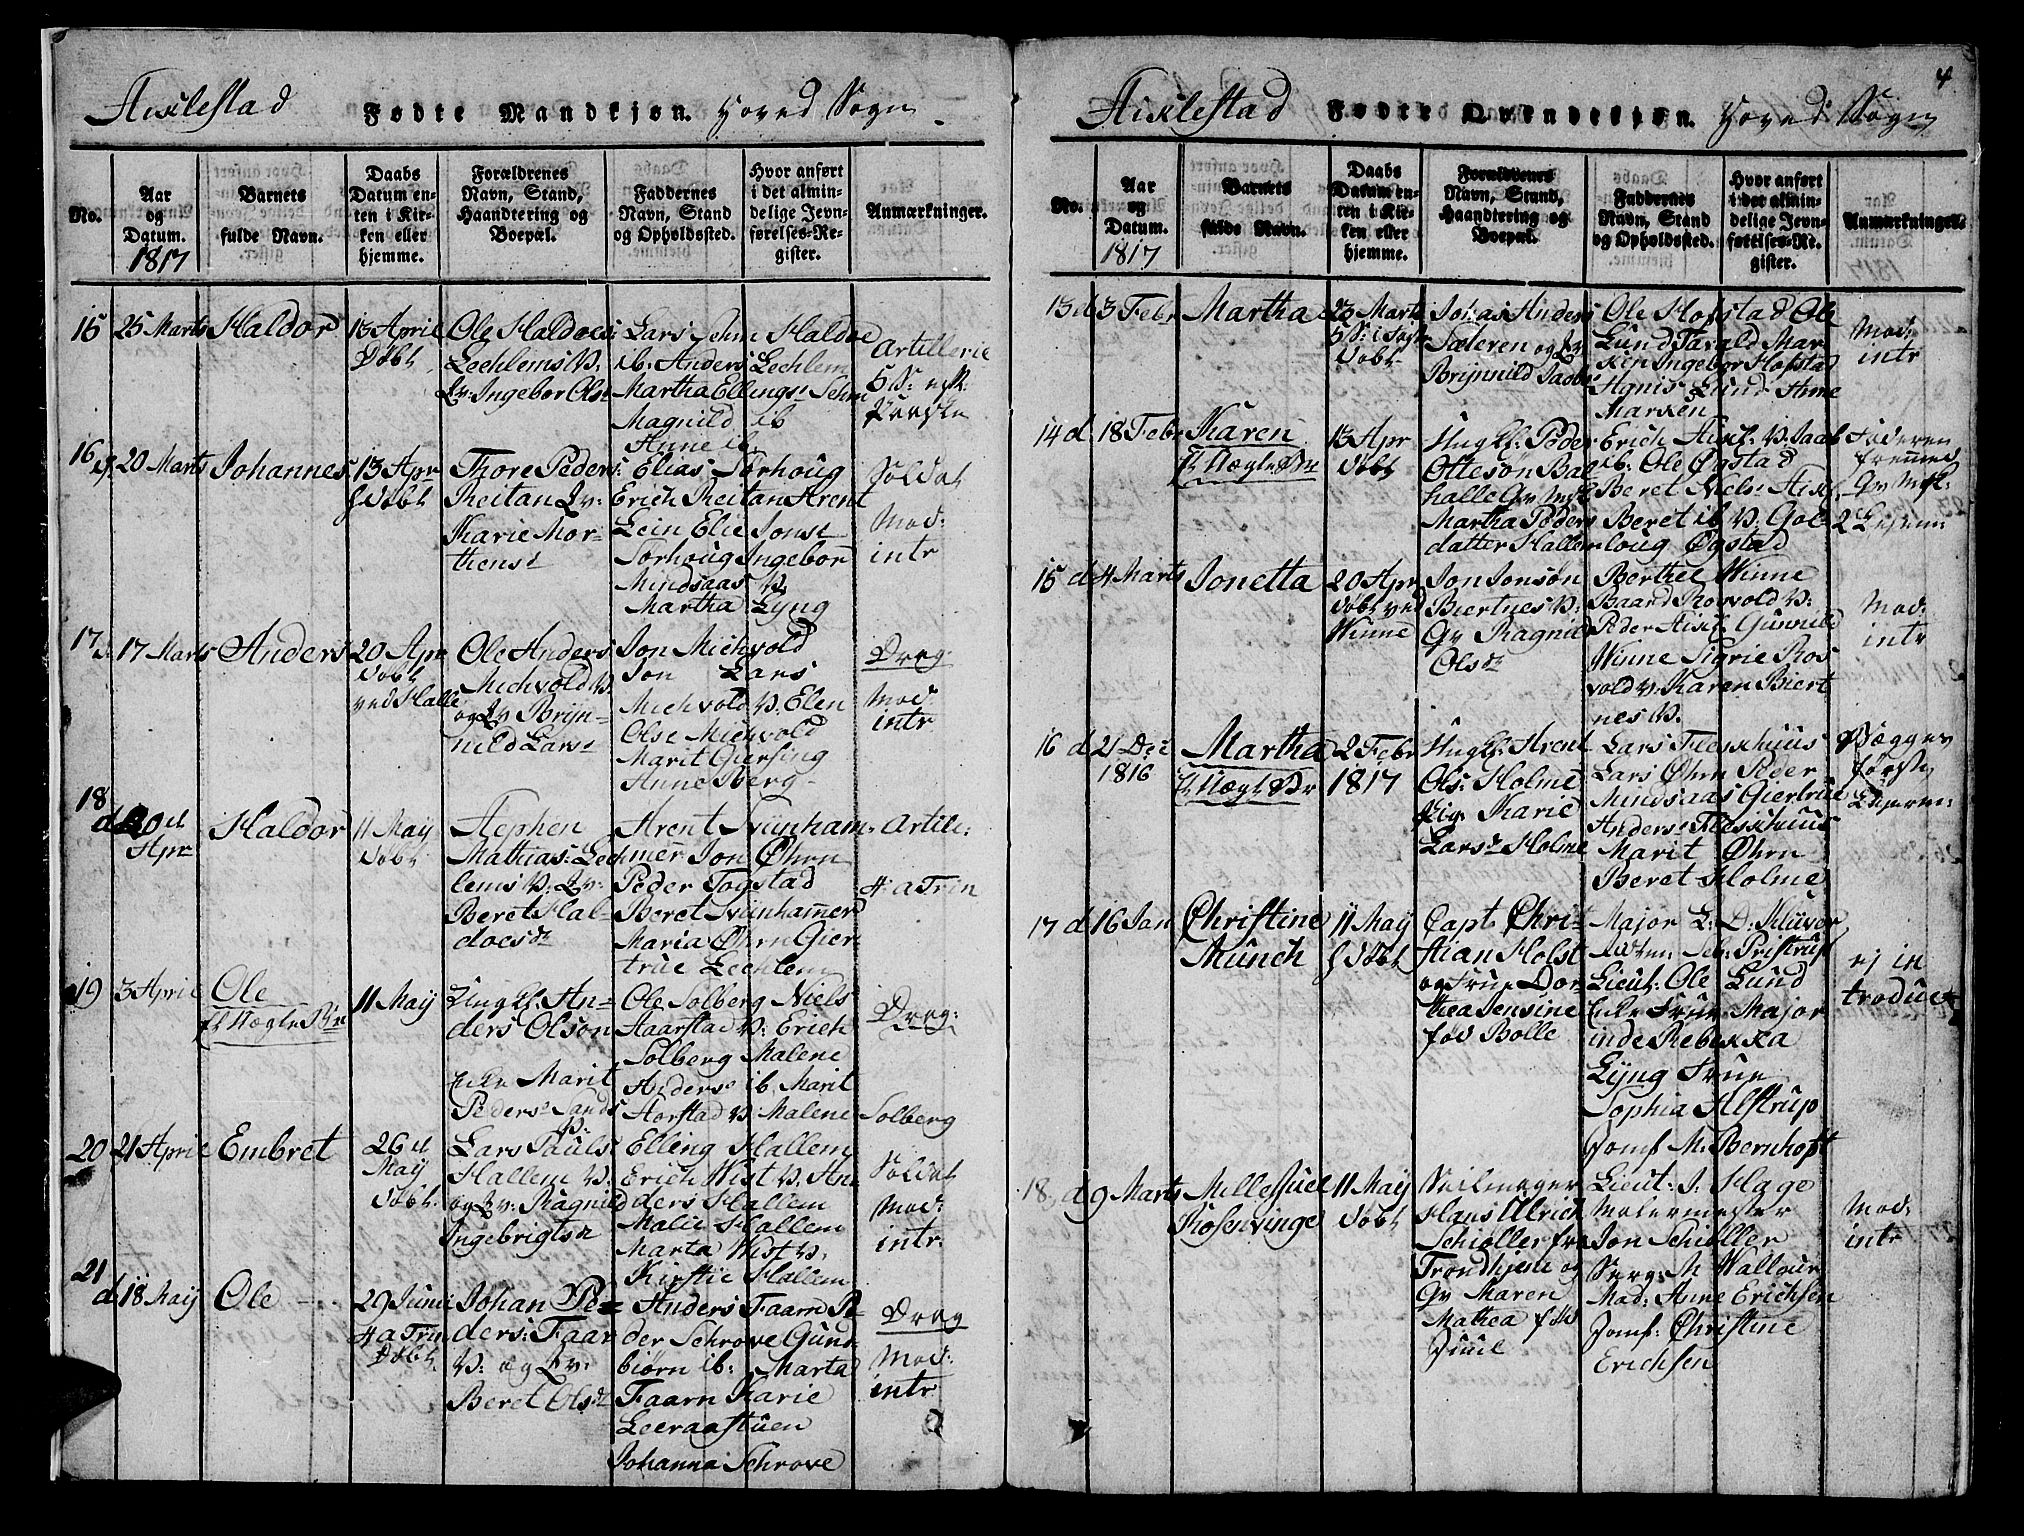 Stiklestad Fødte Mandkjøn. Hoved Sogn
No.
Aar og Datum. 1817
Barnets fulde Navn.
Daabs Datum enten i Kirken eller hjemme.
Forældrenes Navn, Stand, Haandtering og Boepæl.
Faddernes Navn, Stand og Opholdssted.
Hvor anført i det almindelige Jevnførelses-Register.
Anmærkninger.
15 25 Marts Haldor 13 April Døbt
Ole Haldors:
Lechlems V:
Qv: Ingebor Ols:
Lars Sehm Haldor
ib. Anders Lechlem
Martha Ellings: Sehm
Magnild ib
Anne ib.
Artillerie
16 20 Marts Johannes 13 Apr Døbt
Thore Peders:
Reitan Qv:
Karie Morthens:
Elias Sørhoug
Erich Reitan Arent
Lein Elie Jons:
Sørhoug Ingebor
Mindsaas V
Martha Lyng
Soldat
Mod:
intr
17 17 Marts Anders 20 Apr
Døbt
ved Halle
Ole Anders
Michvold V.
og Qv Brynnild Lars:
Jon Michvold
Jon Lars
Michvold V. Elen
Olse Michvold
Marit Giersing
Anne Berg
Drag:
Mod:
intr
18
d 20 d Apr Haldor 11 May Døbt
Stephen
Mathias: Lechlems V. Qv:
Beret Haldors dr
Arent Svünhammer Jon Øhrn
Peder Togstad
Beret Svünhammer
Maria Øhrn Giertrue Lechlem
Artille:
4 a Trin
19 3 April Ole 11 May
Ungkl: Anders Olson
Pige Marit
Peders: Sands V:
Ole Solberg Niels
Haarstad V: Erich
Solberg Malene
Anders: ib. Marit
Harstad V. Malene
Solberg
Drag:
20 21 April Embret 26 d May Døbt
Lars Pauls
Hallem V.
og Qv: Ragnild
Ingebrigts dr
Elling Hallem
Erich Wist V. Anders Hallem
Malie Hallem
Marta Wist V.
Kirstie Hallem
Soldat
Mod:
intr.
21
d 18 May Ole 29 Junii
4 a Trin
Døbt
Johan Peders: Faarn
V: og Qv:
Beret Ols dr
Anders Faarn Peder Schrove Gundbiørn ib: Marta
Faarn Karie
Leeraastuen
Johanna Schrove
Drag
Mod:
intr
4
Stiklestad Fødte Qvindekjøn. Hoved Sogn
No.
Aar og Datum. 1817
Barnets fulde Navn.
Daabs Datum enten i Kirken eller hjemme.
Forældrenes Navn, Stand, Haandtering og Boepæl.
Faddernes Navn, Stand og Opholdssted.
Hvor anført i det almindelige Jevnførelses-Register.
Anmærkninger.
13 d 3 Febr Martha 23 Marts
Døbt
Jonas Anders
Sæteren og Qv
Brynnild Jacobs
Ole Hofstad Ole
Lund Tarald Marxin Ingebor Hofstad
Agnis Lund Anne
Marxen
Mod:
intr
14 d 18 Febr Karen 13 Apr
Døbt
Ungkl: Peder
Otteson Balhalle
Martha Pedersdatter Haller
Erich Stikl: V. Jacob
ib: Ole Øgstad
Beret Niels: Stikl:
Beret ib V: Golloug Øgstad
Faderen
15 d 4 Marts Jonetta 20 Apr
Døbt ved
Winne
Jon Jonson
Biertnes V:
Gv Ragnild
Ols dr
Berthel Winne
Baard Rosvold V:
Peder Stikl. Gunnild
Winne Sigrie Rosvold V: Karen Biertnes V.
Mod:
intr
16 d 21 Dec 1816 Martha 2 Febr 1817
Ungkl: Arent
Ols: Holme
Pig: Marie
Lars dr Holme
Lars Fleskhuus
Lars Øhrn Peder
Mindsaas Giertrue
Anders: Fleskhuus
Marit Øhrn
Beret Holme
Begges
første
Leierm:
17 d 16 Jan Christine Münch 11 May
Døbt
Capt Christian Holst
og Frue Dorthea Jensine
fød Bolle
Major L: D: Klüver
Lieut: Ole Lund
Enke Frue Majorinde Rebekka
Lyng Frue
Sophia Alstrup
Jomf M. Bernhoft
ej introduc
18 d 9 Marts Mille Juel Rosenvinge 11 May
Døbt
Veilmager
Hans Ulrich
Schiøller fra
Trondhjem og
Gv Maren
Mathea fød
Juul
Lieut: J: Hage
Meiermester
Jon Schiøller
Serg: M Wallour
Mad: Anne Erichsen
Jomf: Christine
Erichsen
Mod:
intr